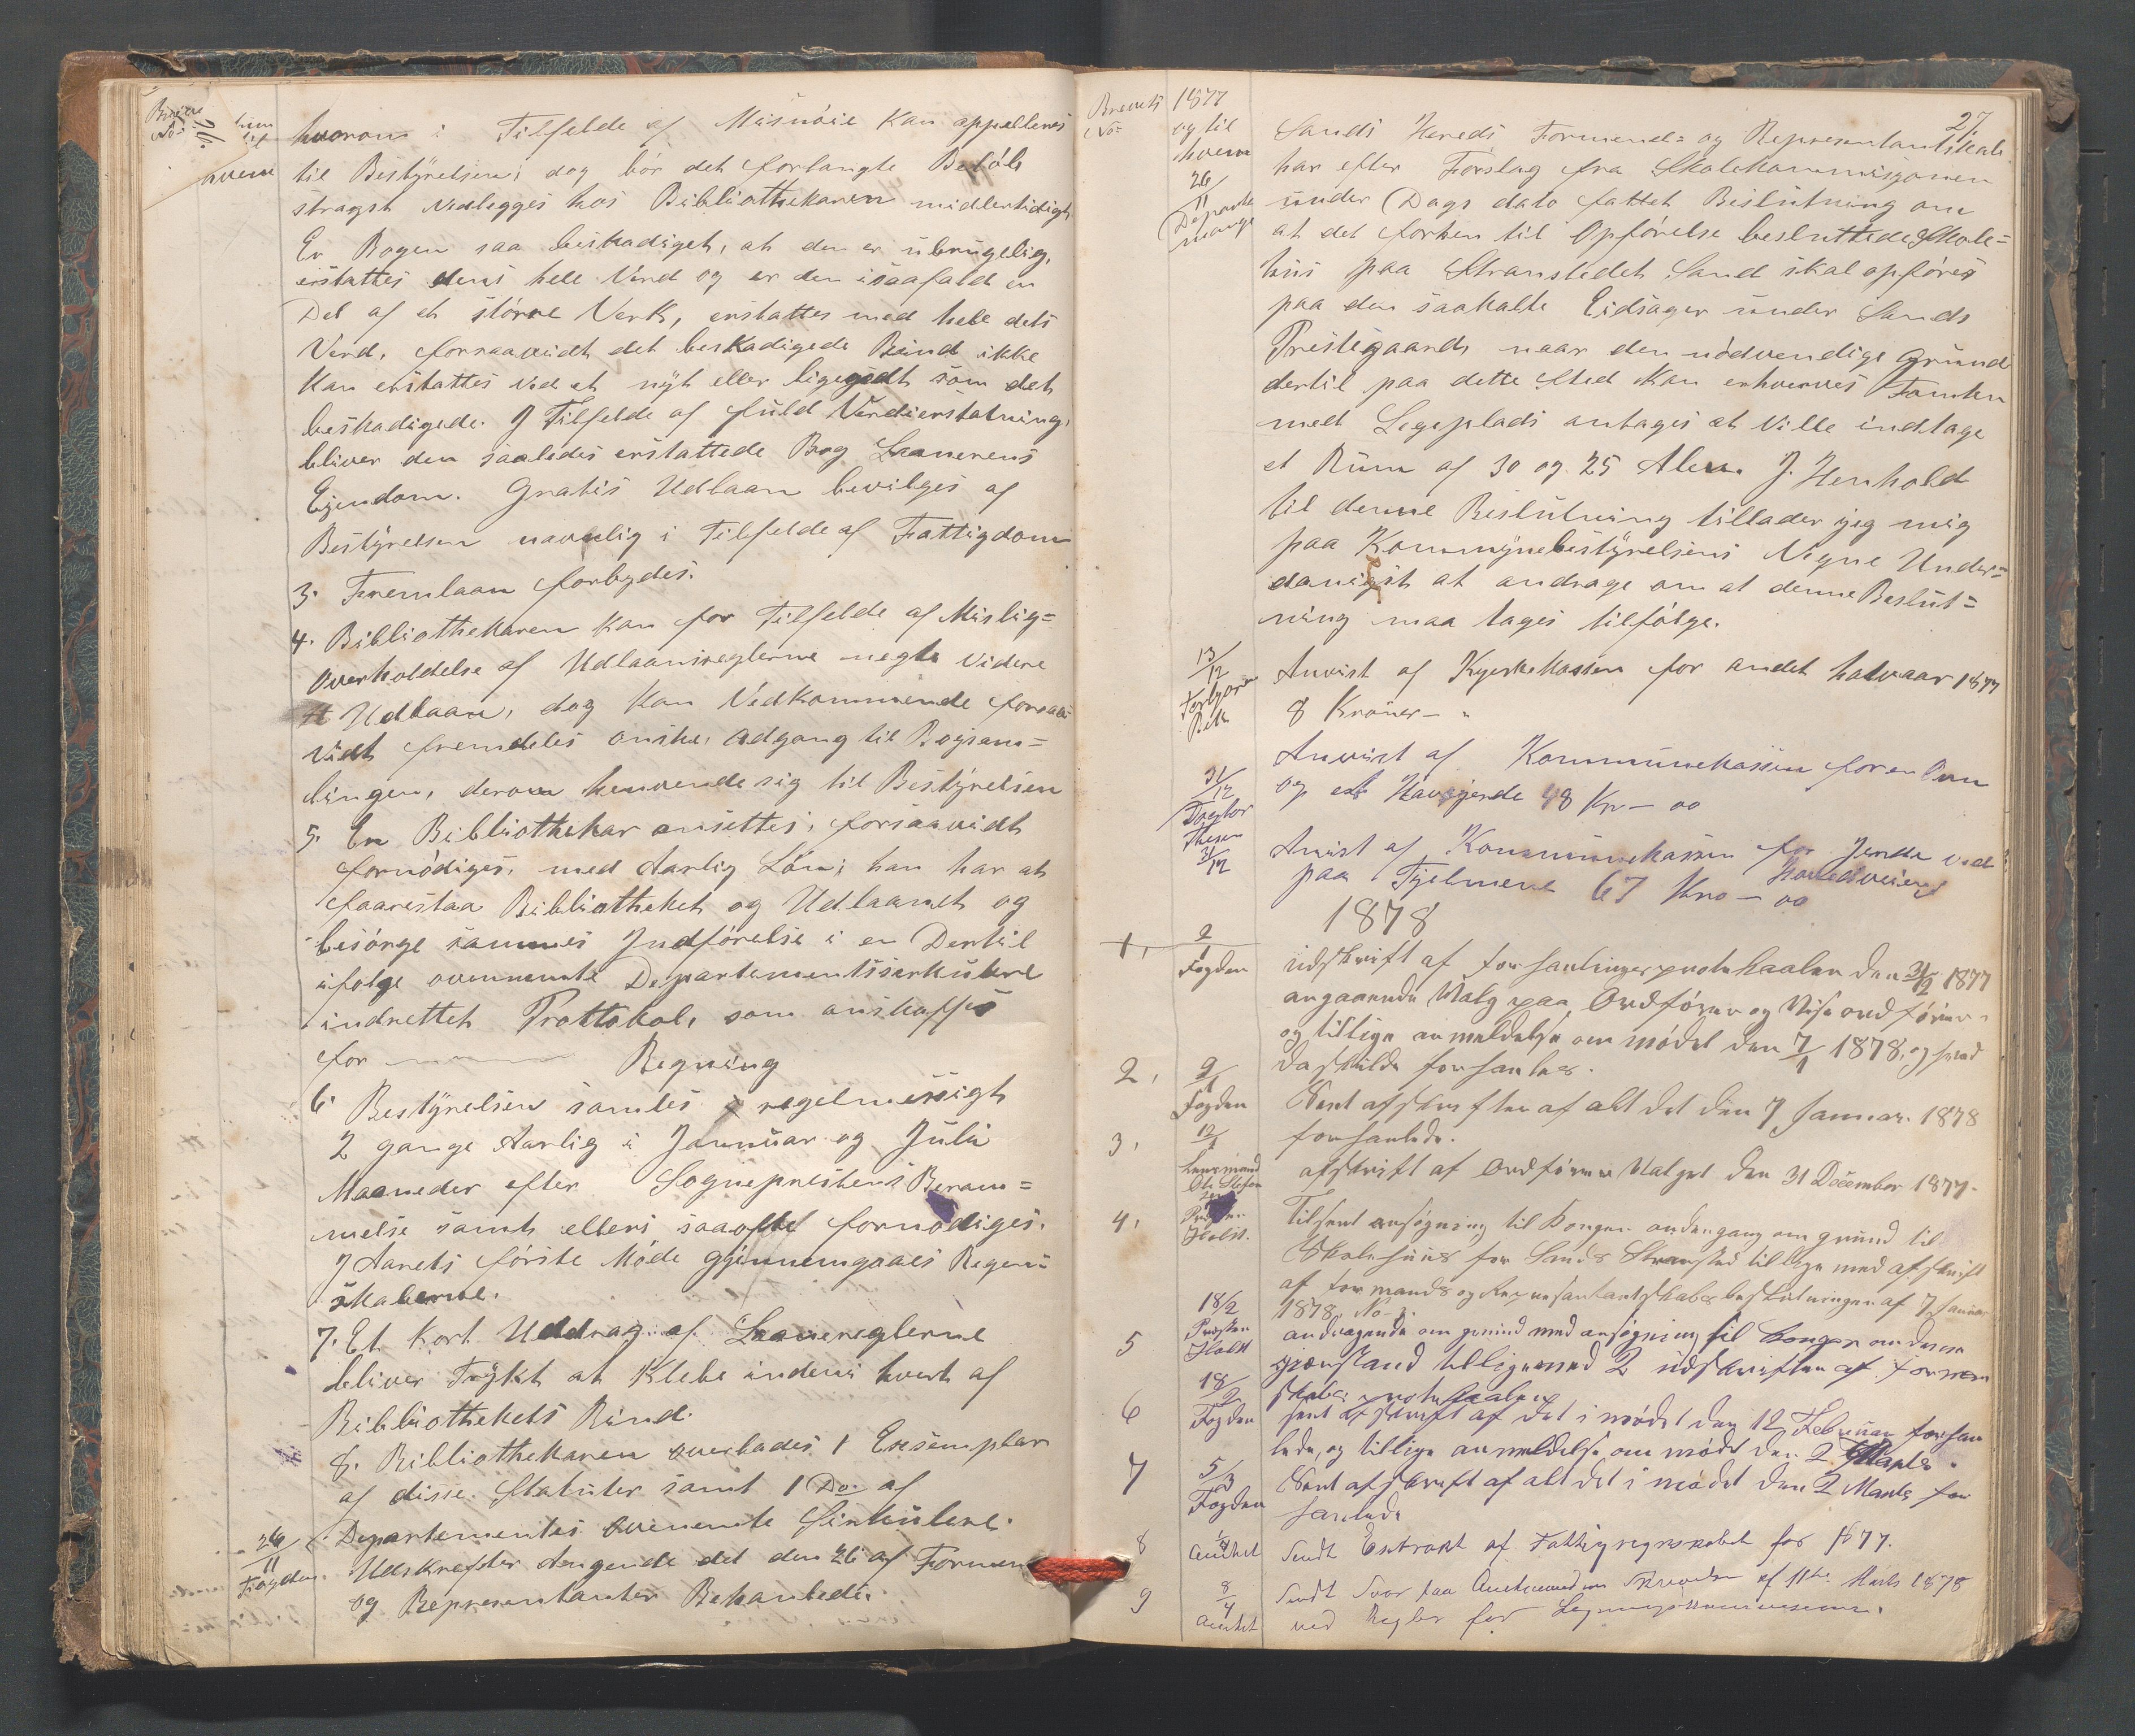 Brevets
No
hvem
hvorom i Tilfelde af Misnöie kan appelleres
til Bestÿrelsen; dog bör det forlangte Belöb
stragst nedlegges hos Bibliothekaren midlertidigt.
Er Bogen saa beskadiget, at den er übrügelig,
erstattes dens hele Verd og er den isaafald en
Del af et större Verk, erstattes med hele dets
Verd, forsaavidt det beskadigede Bind ikke
kan erstattes ved et nÿt eller ligegodt som det
beskadigede. I Tilfelde af füld Verdierstatning,
bliver den saaledes erstattede Bog Laanerens
Ejendom. Gratis Udlaan bevilges af
Bestÿrelsen navnlig i Tilfelde af Fattigdom
3. Fremlaan forbydes.
4. Bibliothekaren kan for Tilfelde af Mislig=
overholdelse af Udlaansreglerne negte videre
Udlaan, dog kan Vedkommende forsaa
vidt fremdeles önske Adgang til Bogsam=
lingen, derom henvende sig til Bestÿrelsen
5. En Bibliothekar ansettes, forsaavidt
fornödiges, med Aarlig Lön; han har at
forestaa Bibliotheket og Udlaanet og
besörge sammes Indförelse i en Dertil
ifölge ovennemte Departementssirkülere
indrettet Prottokol, som anskaffes
for Regning
6. Bestÿrelsen samles regelmessigt
2 gange Aarlig i Januar og Juli
Maaneder efter Sogneprestens Beram=
melse samt ellers saaofte fornödiges.
I Aarets förste Möde gjennemgaaes Regen=
skaberne.
7. Et kort Uddrag af Laanereglerne
bliver Trÿkt at Klebe indeni hvert af
Bibliothekets Bind.
8. Bibliothekaren overlades 1 Exsemplar
af disse Statüter samt 1 Do. af
Departementes ovennemte Sirkülere.
26/11 Fogden. Udskrefter Angende det den 26 af Formen
og Representanter Behanlede.
27.
Brevets No 1877
og til
hvem
Sands Hereds Formend= og Representantskab
har efter Forslag fra Skolekommisjonen
26/11 ünder Dags dato fattet Beslütning om
at det forhen til Opförelse besluttede Skole=
hüs paa Stranstedet Sand skal opföres
paa den saakalte Eidsager ünder Sands
Prestegaard, naar den nödvendige Gründ
dertil paa dette Sted kan erhverves Tomten
med Legeplads antages at ville indtage
et Rüm af 30 og 25 Alen. I Henhold
til denne Beslütning tillader jeg mig
paa Kommünebestÿrelsens Vegne Under=
danigst at andrage om at denne Beslüt=
ning maa tages tilfölge.
13/12 Anvist af Kjerkekassen for andet halvaar 1877
8 Kroner
31/12 Anvist af Kommünekassen for en Ovn
og 48 Kr – 00
Doctor
Thesen
31/12 Anvist af Kommünekassen for ved
paa 67 Kro – 00
1878
1, 2/1 Fogden üdskrift af forhanlingsprotokaalen den 31/12 1877
angaaende Valg paa Ordförer og Viseordförer
og tillige anmeldelse om mödet den 7/1 1878, og hvad
da skülde forhanles.
2, 9/1 Fogden Sent afskrifter af alt det den 7 Januar 1878
forhanlede.
3, 12/1 Lensmand afskrift af ordförer Valget den 31 December 1877.
4, Presten Holst. Tilsent ansögning til Kongen andengang om gründ til
Skolehüüs for Sands Stransted tillige med afskrift
af formands og Representantskabs beslütningen af 7 Januar
1878, No 3.
5 18/2 Presten Holst andragende om gründ med ansögning til Kongen om denne
gjenstand tilligemed 2 üdskrifter af forman
skabs protokaalen
6 18/2 Fogden sent afskrift af det i mödet den 12 Februar forhan
lede, og tillige anmeldelse om mödet den 2 Marts.
7 5/3 Fogden Sent afskrift af alt det i mödet den 2 Marts for
hanlede
8 Amtet Sendt Extrakt af Fattigregnskabet for 1877.
9 8/4 Amtet Sendt Svar paa Amtmandens Skrivelse af 11te Marts 1878
ved Regler for Ligningskommisionen.